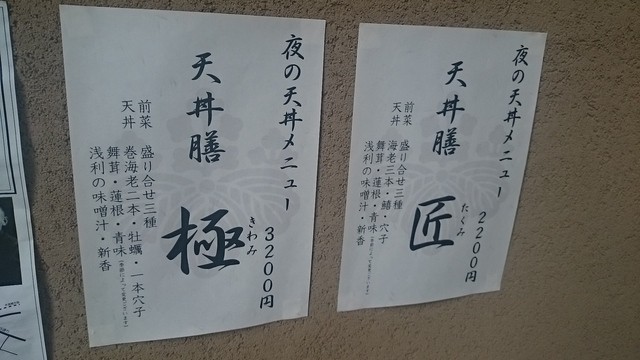 夜の天丼メニュー
天丼膳 匠
たくみ
2200円
前菜 盛り合せ三種
天丼 海老三本・鱚・穴子
舞茸・蓮根・青味
浅利の味噌汁・新香
夜の天丼メニュー
天丼膳 極
きわみ
3200円
前菜 盛り合せ三種
天丼 巻海老二本・牡蠣・一本穴子
舞茸・蓮根・青味(季節によって変更ございます)
浅利の味噌汁・新香